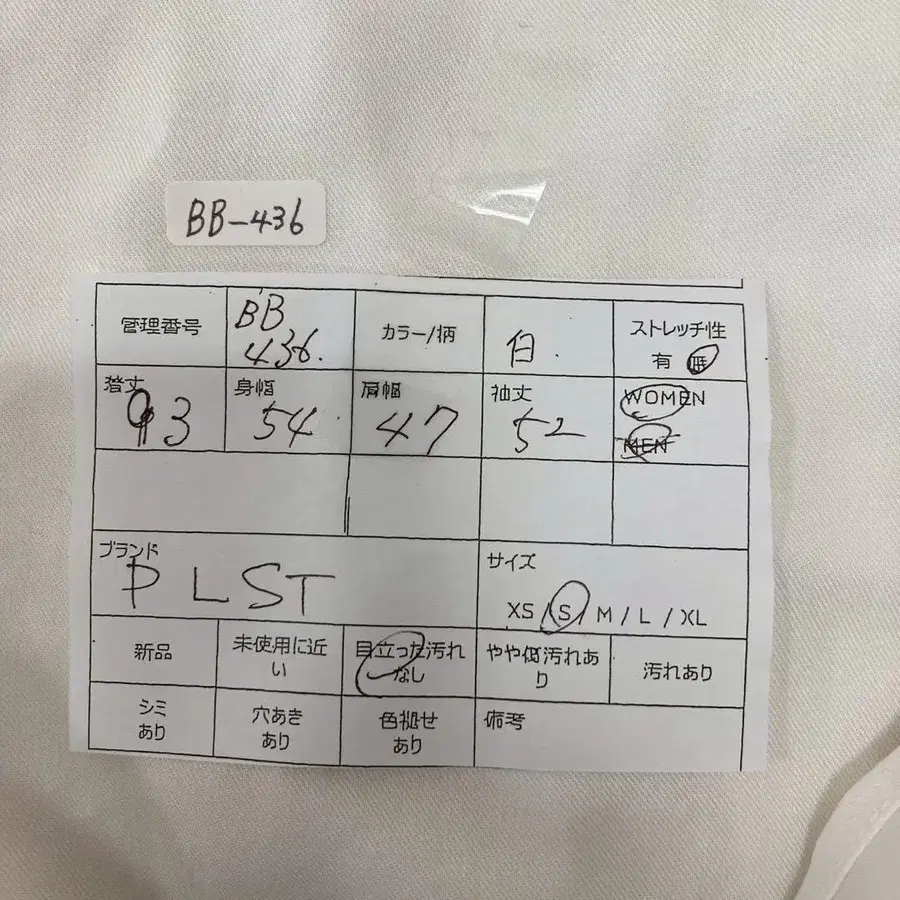 BB-436
管理番号
BB
436.
カラー/柄
白.
ストレッチ性
有 無
着丈
93
身幅
54
肩幅
47
袖丈
52
WOMEN
MEN
ブランド
PLST
サイズ
XS/S/M/L/XL
新品
未使用に近
い
目立った汚れ
なし
やや傷汚れあ
り
汚れあり
シミ
あり
穴あき
あり
色褪せ
あり
備考